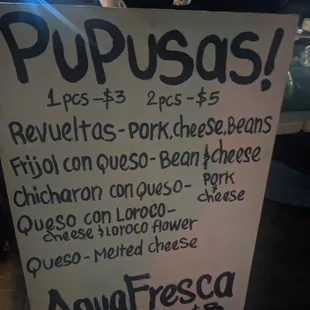 PUPUSAS!
1pcs-$3 2pcs-$5
Revueltas-Pork,cheese,Beans
Frijol con Queso-Bean & cheese
Chicharon con Queso- Pork
cheese
Queso con Loroco-
cheese & Loroco flower
Queso-Melted cheese
Agua Fresca